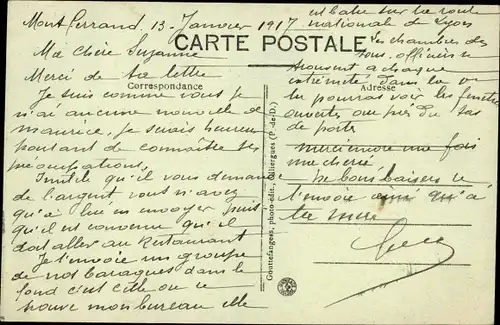 Mont Ferrand 13 Janvier 1917
Ma Chère Suzanne
CARTE POSTALE
Merci de ta lettre
Correspondance
Je suis comme vous je
n'ai aucune nouvelle de
Maurice, je serais heureux
pourtant de connaître ses
préoccupations,
Inutile qu'il vous demande
de l'argent vous n'avez
qu'à lui en envoyer puis
qu'il est convenu qu'il
doit aller au Restaurant
Je t'envoie un groupe
de nos baraques dans le
fond c'est celle ou se
trouve mon bureau elle
est batie sur la route
national de Lyon
Les chambres des
sous-officiers se
trouvent a chaque
extrémité dans la
Adresse
tu pourras voir les fenetres
ouvertes au près du
de porte
merci encore une fois
ma cherie
de bons baisers
t'envoie qu'à
ta mère
Gouttefangeas, photo-édit., Olliergues (P.-de-D.)